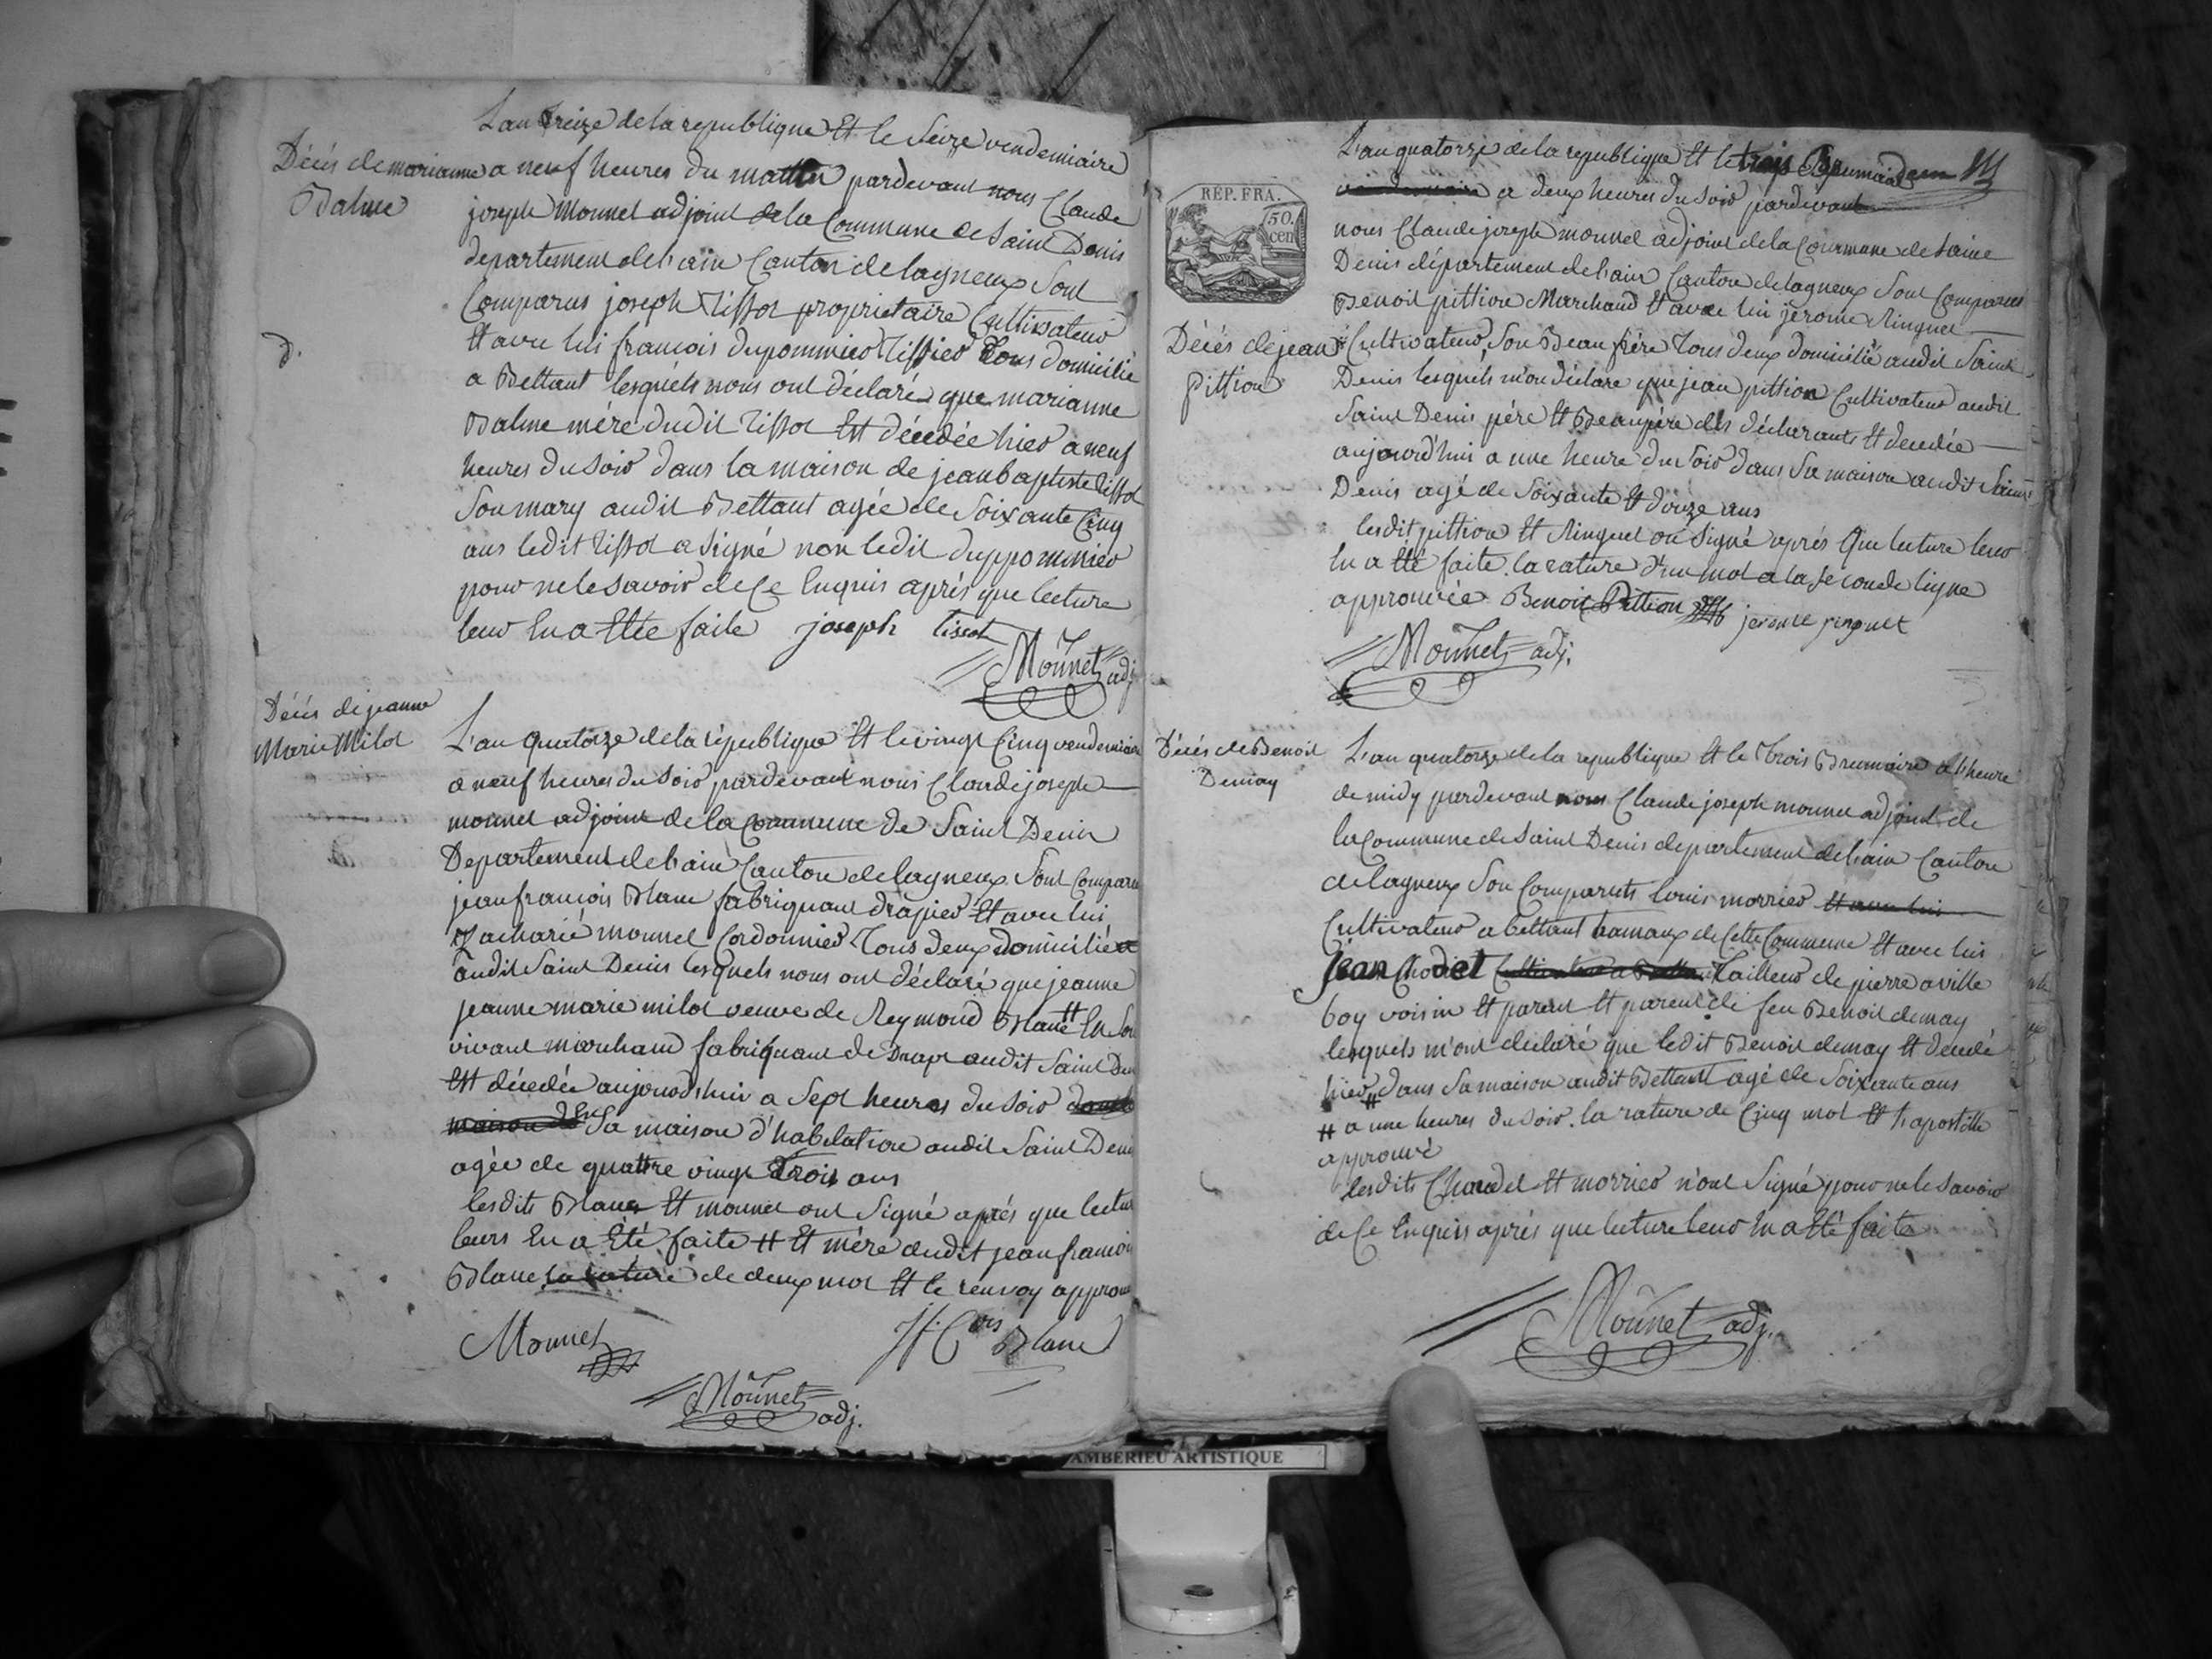 L'an treize de la republique Et le Seize vendemiaire
Décés de marianne
Balme
a neuf heures du matin pardevant nous Claude
joseph Monnet adjoint de la Commune de Saint Denis
departement de l'ain Canton de lagneux Sont
Comparus joseph Tissot proprietaire Cultivateur
d.
Et avec lui francois dupommier Tissier Tous domicilié
a Bettant lesquels nous ont déclaré que marianne
Balme mére dudit Tissot Est décédée hier a neuf
heures du soir dans la maison de jean baptiste tissot
Son mary audit Bettant agée de Soixante Cinq
ans ledit Tissot a signé non ledit duppommier
pour ne le savoir de Ce Enquis aprés que lecture
leur En a Etée faite joseph tissot
Monnet adj.
Décés de jeanne
Marie Milot
L'an quatorze de la république Et le vingt Cinq vendemiaire
a neuf heures du soir pardevant nous Claude joseph
monnet adjoint de la Commune de Saint Denis
Departement de l'ain Canton de lagneux Sont Comparu
jean francois Blanc fabriquant drapier Et avec lui
Zacharie monnet Cordonnier Tous deux domicilié
audit Saint Denis lesquels nous ont déclaré que jeanne
jeanne marie milot veuve de Reymond Blanc # En Son
vivant marchand fabriquant de Drap audit Saint Den
Est décedée aujourd'hui a Sept heures du soir dans la
maison de En Sa maison d'habitation audit Saint Deni
agée de quattre vingt Trois ans
lesdits Blanc Et monnet ont Signé aprés que lectur
leurs En a Eté faite # Et mére dudit jean francoi
Blanc la rature de deux mot Et le renvoy approuv
Monnet
Jf. Cois Blanc
Monnet adj.
REP. FRA.
50.
cen
L'an quatorze de la republique Et le trois Brumaire
vendemiaire a deux heures du soir pardevant
nous Claude joseph monnet adjoint de la Commune de Saint
Denis département de l'ain Canton de lagneux Sont Comparus
Benoit pittion Marchand Et avec lui jerome Ringuet
Décés de jean
Pittion
Cultivateur, Son Beau frére Tous deux domicilié audit Saint
Denis lesquels m'on déclare que jean pittion Cultivateur audit
Saint Denis pére Et Beaupére des déclarants Et decedée
aujourd'hui a une heure du soir dans Sa maison audit Saint
Denis agé de Soixante Et douze ans
lesdit pittion Et Ringuet on signé aprés Que lecture leur
En a Eté faite. la rature d'un mot a la seconde ligne
approuvée Benoit Pittion jerome ringuet
Monnet adj.
Décés de Benoit
Demay
L'an quatorze de la republique Et le Trois Brumaire a l'heure
de midy pardevant nous Claude joseph monnet adjoint de
la Commune de Saint Denis departement de l'ain Canton
de lagneux Son Comparuts louis morrier Et avec lui
Cultivateur a bettant hamaux de Cette Commune Et avec lui
Jean Chodet Cultivateur a Bettant Tailleur de pierre a ville
boy voisin Et parent Et parent de feu Benoit demay
lesquels m'ont declaré que ledit Benoit demay Et decedé
hier # dans Sa maison audit Bettant agé de Soixante ans
# a une heures du soir. la rature de Cinq mot Et l'apostille
approuvé
lesdits Chaudet Et morrier n'ont Signé pour ne le savoir
de Ce Enquis aprés que lecture leur En a Eté faite
Monnet adj.
AMBERIEU ARTISTIQUE